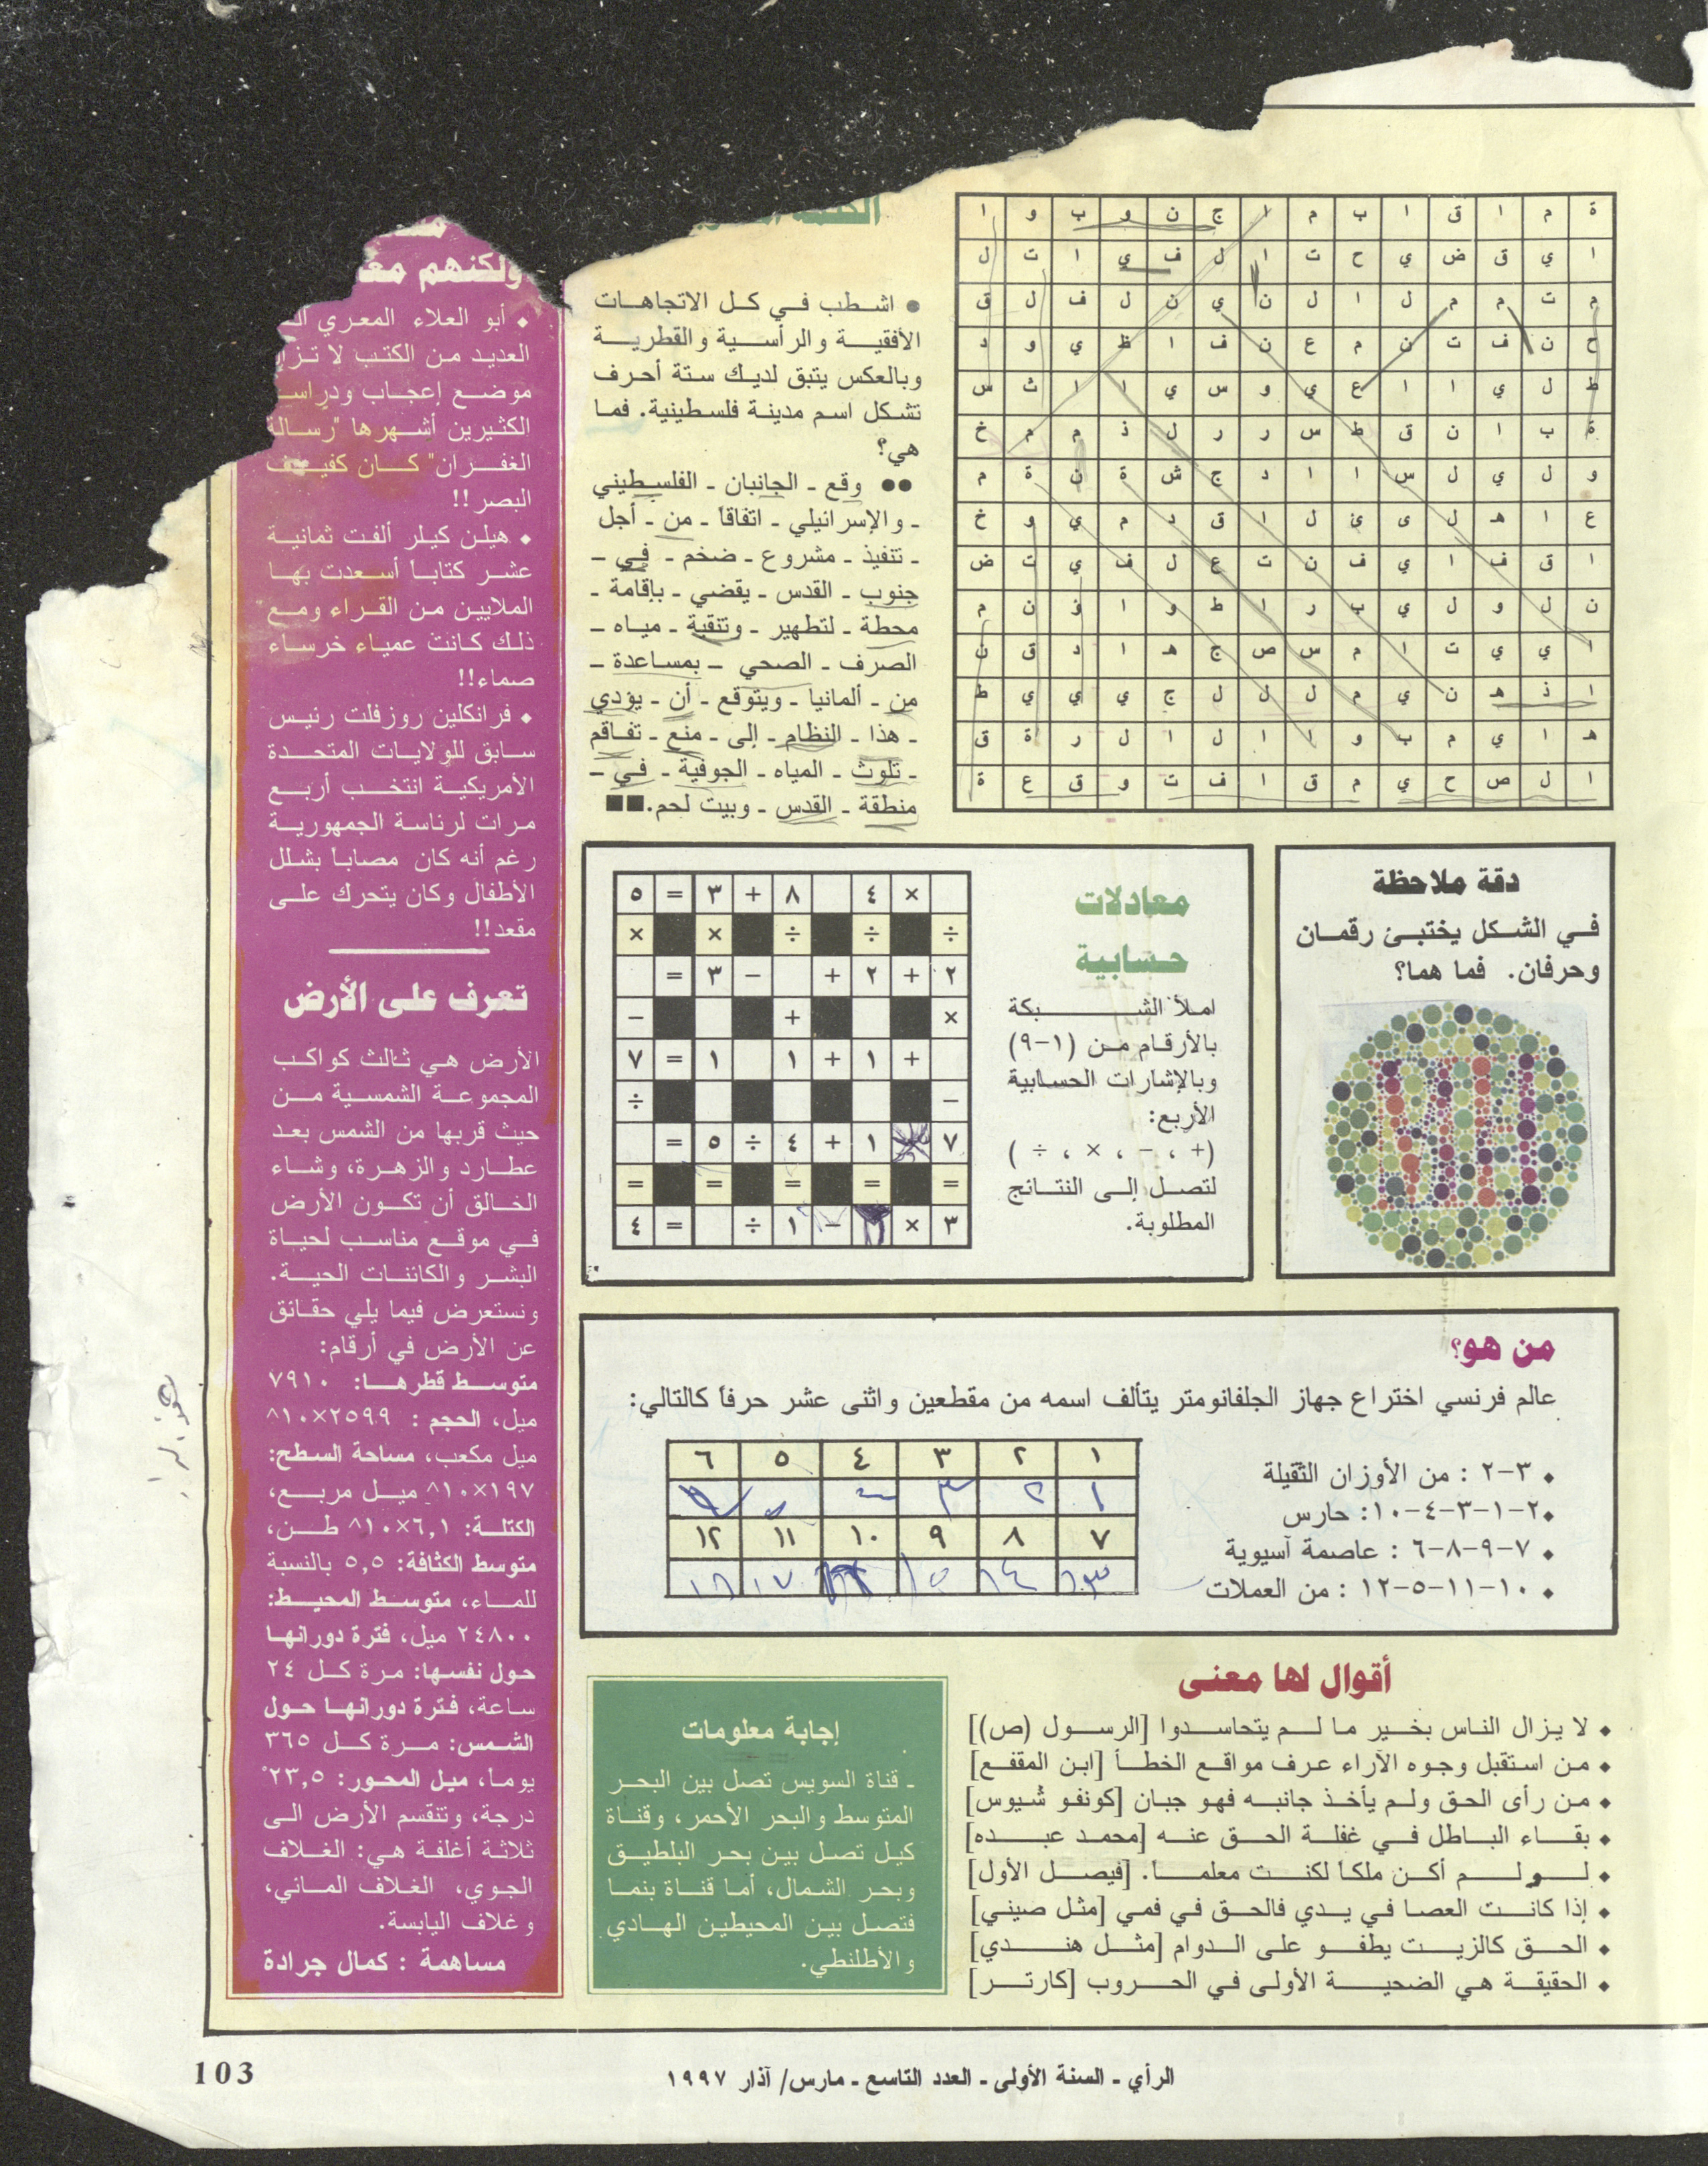 ة م ا ق ا ب م ا ج ن و ب و ا
ا ي ق ض ي ح ت ا ل ف ي ا ت ل
م ت م م ل ا ل ن ي ن ل ف ل ق
ح ن ف ت ن م ع ن ف ا ظ ي و د
ط ل ي ا ا ع ي و س ي ا ا ث س
ة ب ا ن ق ط س ر ر ل ذ م م خ
و ل ي ل س ا ا د ج ش ة ن ة م
ع ا هـ ل ى ئ ل ا ق د م ي و خ
ا ق ف ا ي ف ن ت ع ل ف ي ت ض
ن ل و ل ي ب ر ا ط و ا ف ن م
ا ي ي ت ا م س ص ج هـ ا د ق ن
ا ذ هـ ن ي م ل ل ل ج ي ي ي ط
هـ ا ي م ب و ا ا ل ا ل ر ة ق
ا ل ص ح ي م ق ا ف ت و ق ع ة
● اشطب في كل الاتجاهات
الأفقية والرأسية والقطرية
وبالعكس يتبق لديك ستة أحرف
تشكل اسم مدينة فلسطينية. فما
هي؟
●● وقع ـ الجانبان ـ الفلسطيني
ـ والإسرائيلي ـ اتفاقاً ـ من ـ أجل
ـ تنفيذ ـ مشروع ـ ضخم ـ في ـ
جنوب ـ القدس ـ يقضي ـ بإقامة ـ
محطة ـ لتطهير ـ وتنقية ـ مياه ـ
الصرف ـ الصحي ـ بمساعدة ـ
من ـ ألمانيا ـ ويتوقع ـ أن ـ يؤدي
ـ هذا ـ النظام ـ إلى ـ منع ـ تفاقم
ـ تلوث ـ المياه ـ الجوفية ـ في ـ
منطقة ـ القدس ـ وبيت لحم.■■
دقة ملاحظة
في الشكل يختبئ رقمان
وحرفان. فما هما؟
معادلات
حسابية
املأ الشبكة
بالأرقام من (١-٩)
وبالإشارات الحسابية
الأربع:
(+ ، - ، × ، ÷ )
لتصل إلى النتائج
المطلوبة.
× ٤ ٨ + ٣ = ٥
÷ ÷ ÷ × ×
٢ + ٢ + - ٣ =
× + -
+ ١ + ١ ١ = ٧
- ÷
٧ ١ + ٤ ÷ ٥ =
= = = = =
٣ × - ١ ÷ = ٤
من هو؟
عالم فرنسي اختراع جهاز الجلفانومتر يتألف اسمه من مقطعين واثنى عشر حرفاً كالتالي:
♦ ٣-٢ : من الأوزان الثقيلة
♦٢-١-٣-٤-١٠: حارس
♦ ٧-٩-٨-٦ : عاصمة آسيوية
♦ ١٠-١١-٥-١٢ : من العملات
١ ٢ ٣ ٤ ٥ ٦
١ ٢ ٣
٧ ٨ ٩ ١٠ ١١ ١٢
١٣ ١٤ ١٥ ١٧ ١٨
أقوال لها معنى
♦ لا يزال الناس بخير ما لم يتحاسدوا [الرسول (ص)]
♦ من استقبل وجوه الآراء عرف مواقع الخطأ [ابن المقفع]
♦ من رأى الحق ولم يأخذ جانبه فهو جبان [كونفو شُيوس]
♦ بقاء الباطل في غفلة الحق عنه [محمد عبده]
♦ لو لم أكن ملكاً لكنت معلماً. [فيصل الأول]
♦ إذا كانت العصا في يدي فالحق في فمي [مثل صيني]
♦ الحق كالزيت يطفو على الدوام [مثل هندي]
♦ الحقيقة هي الضحية الأولى في الحروب [كارتر]
إجابة معلومات
ـ قناة السويس تصل بين البحر
المتوسط والبحر الأحمر، وقناة
كيل تصل بين بحر البلطيق
وبحر الشمال، أما قناة بنما
فتصل بين المحيطين الهادي
والأطلنطي.
ولكنهم
♦ أبو العلاء المعري
العديد من الكتب لا تزال
موضع إعجاب
الكثيرين أشهرها "رسالة
الغفران" كان كفيف
البصر!!
♦ هيلن كيلر ألفت ثمانية
عشر كتاباً أسعدت بها
الملايين من القراء ومع
ذلك كانت عمياء خرساء
صماء!!
♦ فرانكلين روزفلت رئيس
سابق للولايات المتحدة
الأمريكية انتخب أربع
مرات لرئاسة الجمهورية
رغم أنه كان مصاباً بشلل
الأطفال وكان يتحرك على
مقعد!!
تعرف على الأرض
الأرض هي ثالث كواكب
المجموعة الشمسية من
حيث قربها من الشمس بعد
عطارد والزهرة، وشاء
الخالق أن تكون الأرض
في موقع مناسب لحياة
البشر والكائنات الحية.
ونستعرض فيما يلي حقائق
عن الأرض في أرقام:
متوسط قطرها: ٧٩١٠
ميل، الحجم : ٢٥٩٩×١٠^٨
ميل مكعب، مساحة السطح:
١٩٧×١٠^٨ ميل مربع،
الكتلة: ٦,١×١٠^٨ طن،
متوسط الكثافة: ٥,٥ بالنسبة
للماء، متوسط المحيط:
٢٤٨٠٠ ميل، فترة دورانها
حول نفسها: مرة كل ٢٤
ساعة، فترة دورانها حول
الشمس: مرة كل ٣٦٥
يوما، ميل المحور: ٢٣,٥°
درجة، وتنقسم الأرض الى
ثلاثة أغلفة هي: الغلاف
الجوي، الغلاف المائي،
وغلاف اليابسة.
مساهمة : كمال جرادة
الرأي ـ السنة الأولى ـ العدد التاسع ـ مارس/ آذار ١٩٩٧
103